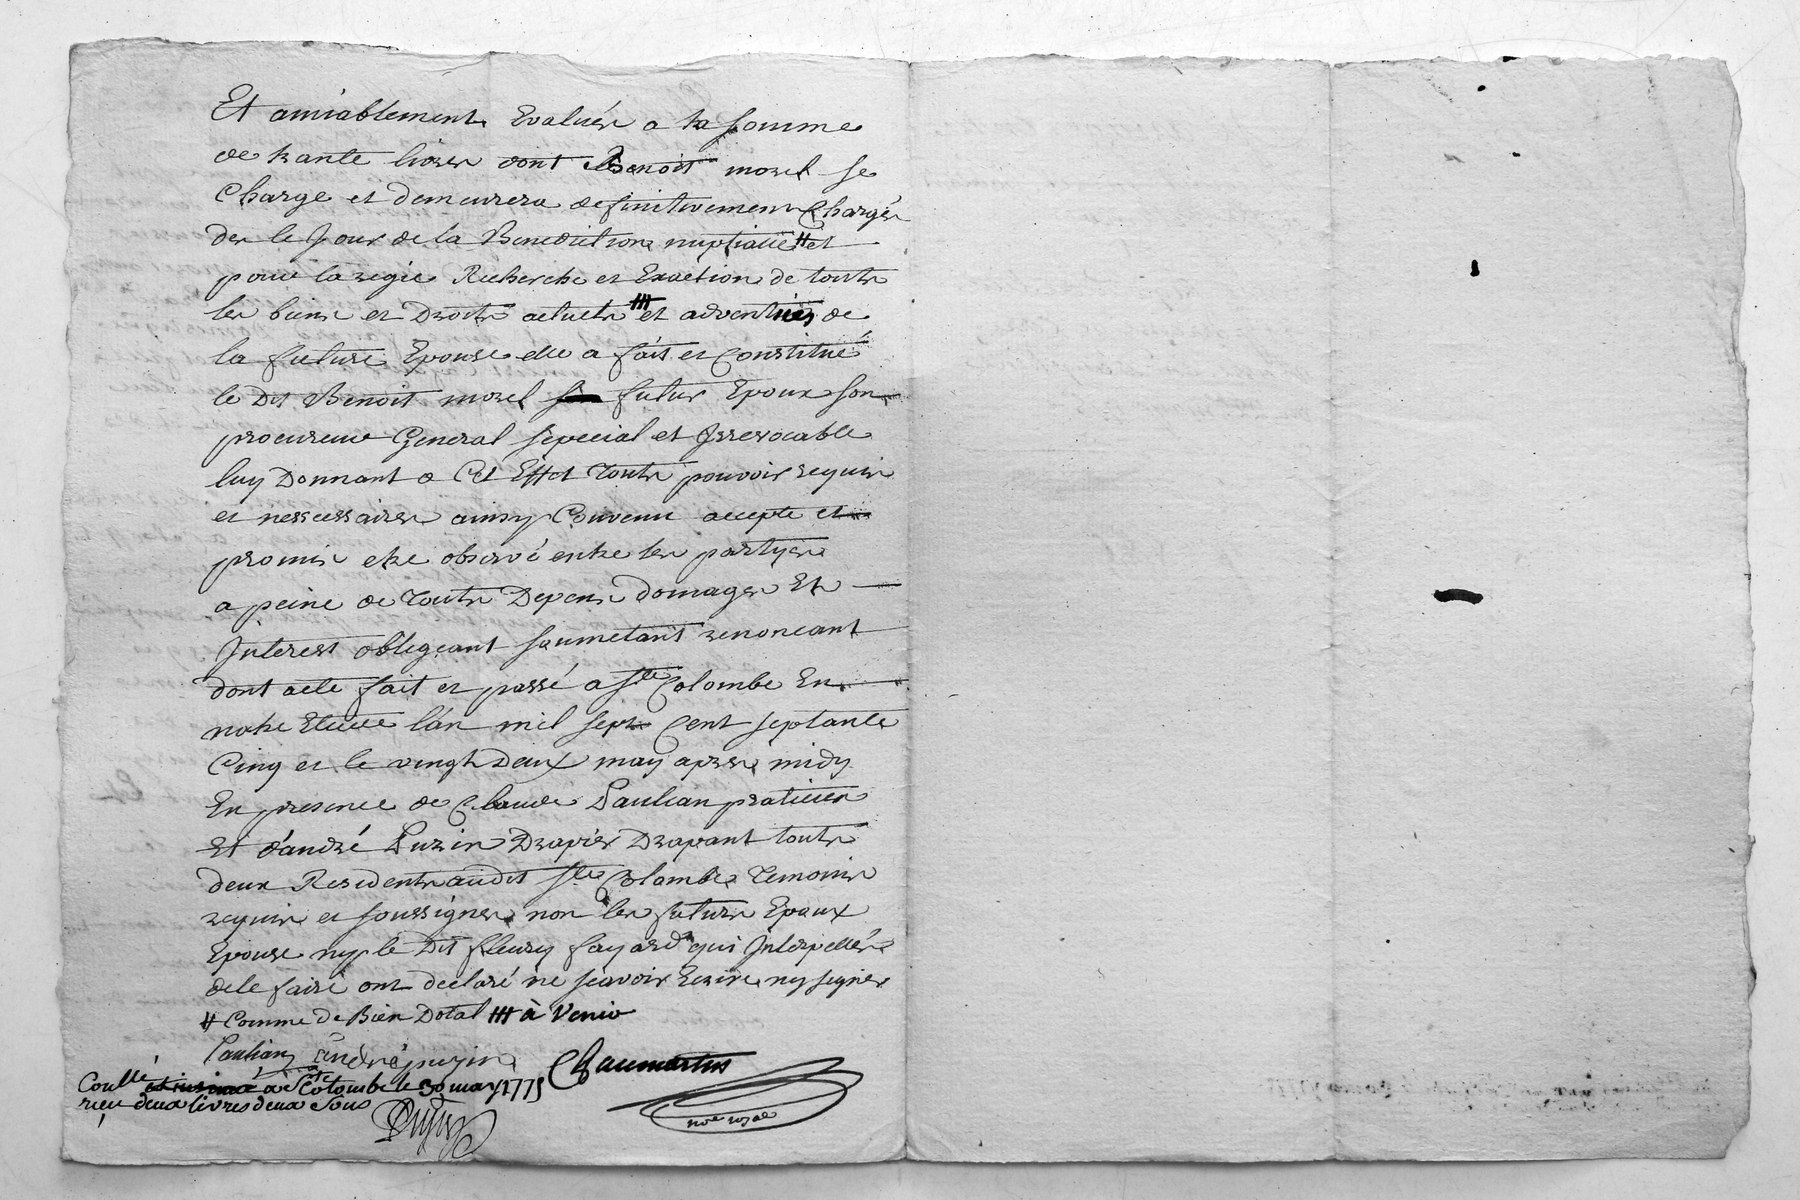 Et amiablement Evalués a la somme
de trante livres dont Benoit morel se
Charge et demeurera definitivement Chargés
des le Jour de la Benediction nuptialle # et
pour la regie Recherche et Exaction de touts
les biens et Droits actuels ### et adventifs de
la future Epouse elle a fait et Constitué
le Dit Benoit morel futur Epoux son
procureur General special et Irrevocable
luy Donnant a Cet Effet touts pouvoir requis
et nessessaires ainsy Convenu accepte et
promis etre observé entre les partyes
a peine de touts Depens domages Et
Interest obligeant soumetant renoncant
dont acte fait et passé a Ste Colombe En
notre Etude l'an mil sept Cent septante
Cinq et le vingt Deux may apres midy
En presence de Claude Paulian praticien
Et d'andré Puzin Drapier Drapant touts
deux Residents audit Ste Colombe Temoins
requis et soussignes non les futurs Epoux
Epouse ny le Dit fleury fayard qui Interpellés
de le faire ont declaré ne scavoir Ecrire ny signer
# Comme de Bien Dotal ### à Venir
Paulian andré puzin Chaumartin
nore royal
Coullé a Ste Colombe le 30 may 1775
reçu deux livres deux Sous